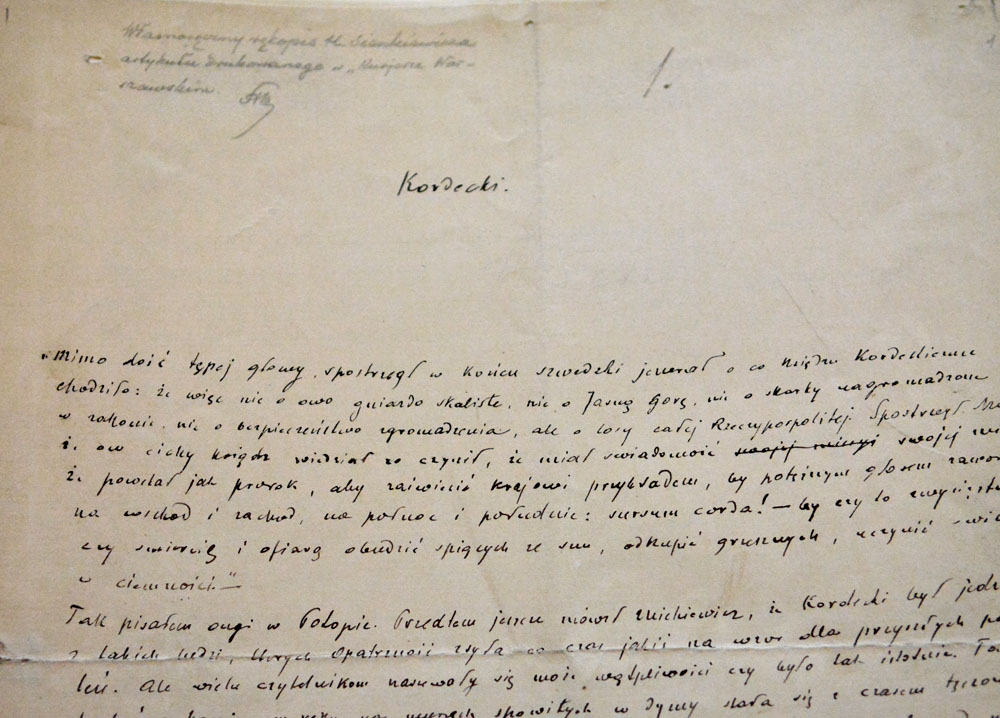 Własnoręczny rękopis H. Sienkiewicza
artykułu drukowanego w „Kurjerze War-
szawskim.
1.
Kordecki.
„Mimo dość tępej głowy, spostrzegł w końcu szwedzki jenerał o co księdzu Kordeckiemu
chodziło: że więc nie o owo gniazdo skaliste, nie o Jasną Górę, nie o skarby nagromadzone
w zakonie, nie o bezpieczeństwo zgromadzenia, ale o losy całej Rzeczypospolitej. Spostrzegł
że ów cichy ksiądz wiedział co czynił, że miał świadomość swojej misyi swojej
że powstał jak prorok, aby zaświecić krajowi przykładem, by potężnym głosem
na wschód i zachód, na północ i południe: sursum corda! — by czy to
czy śmiercią i ofiarą obudzić śpiących ze snu, odkupić grzesznych, uczynić
w ciemności.” —
Tak pisałem ongi w Potopie. Przedtem jeszcze mówił Mickiewicz, iż Kordecki był
z takich ludzi, których Opatrzność zsyła co czas jakiś na wzór dla przyszłych
leń. Ale wielu czytelnikom nasuwały się może wątpliwości czy było tak istotnie.
spowitych w dymy stała się z czasem